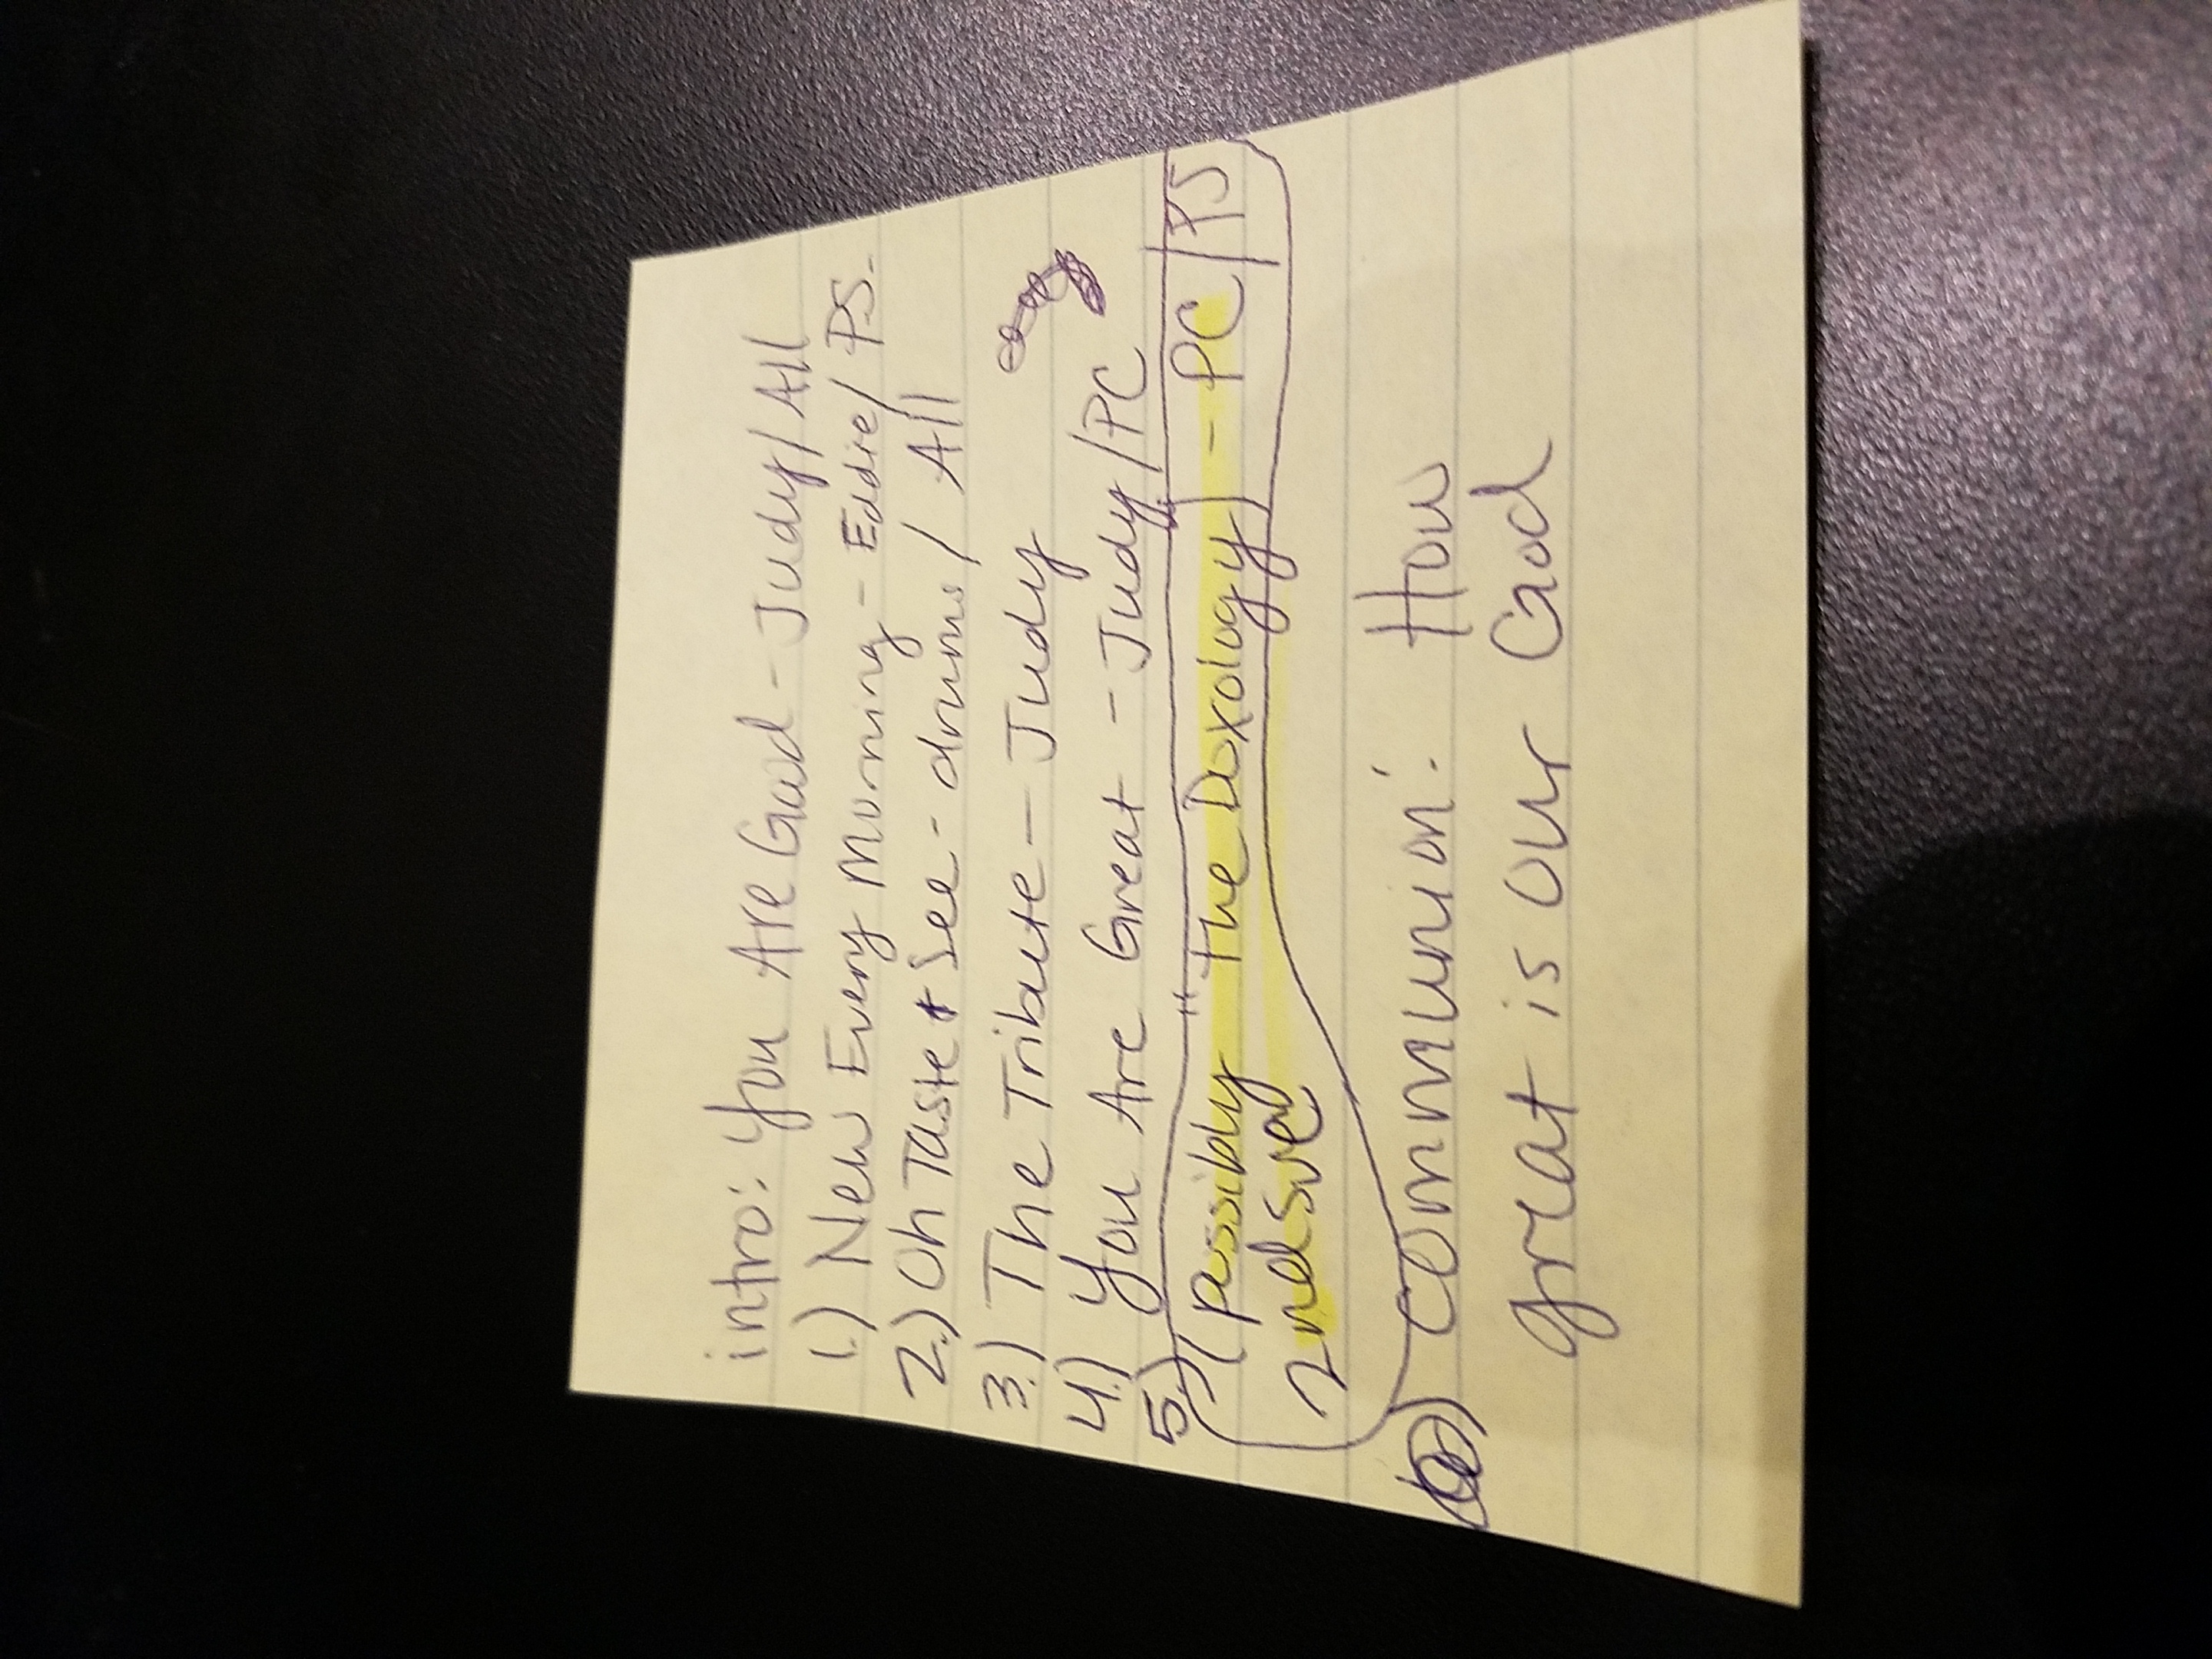 intro: You Are Good - Judy/All
1.) New Every Morning - Eddie/PS.
2.) Oh Taste + See - drums/All
3.) The Tribute - Judy
4.) You Are Great - Judy/PC
5.) (possibly "The Doxology") - PC/PS
2nd Svc
Communion: How
great is our God